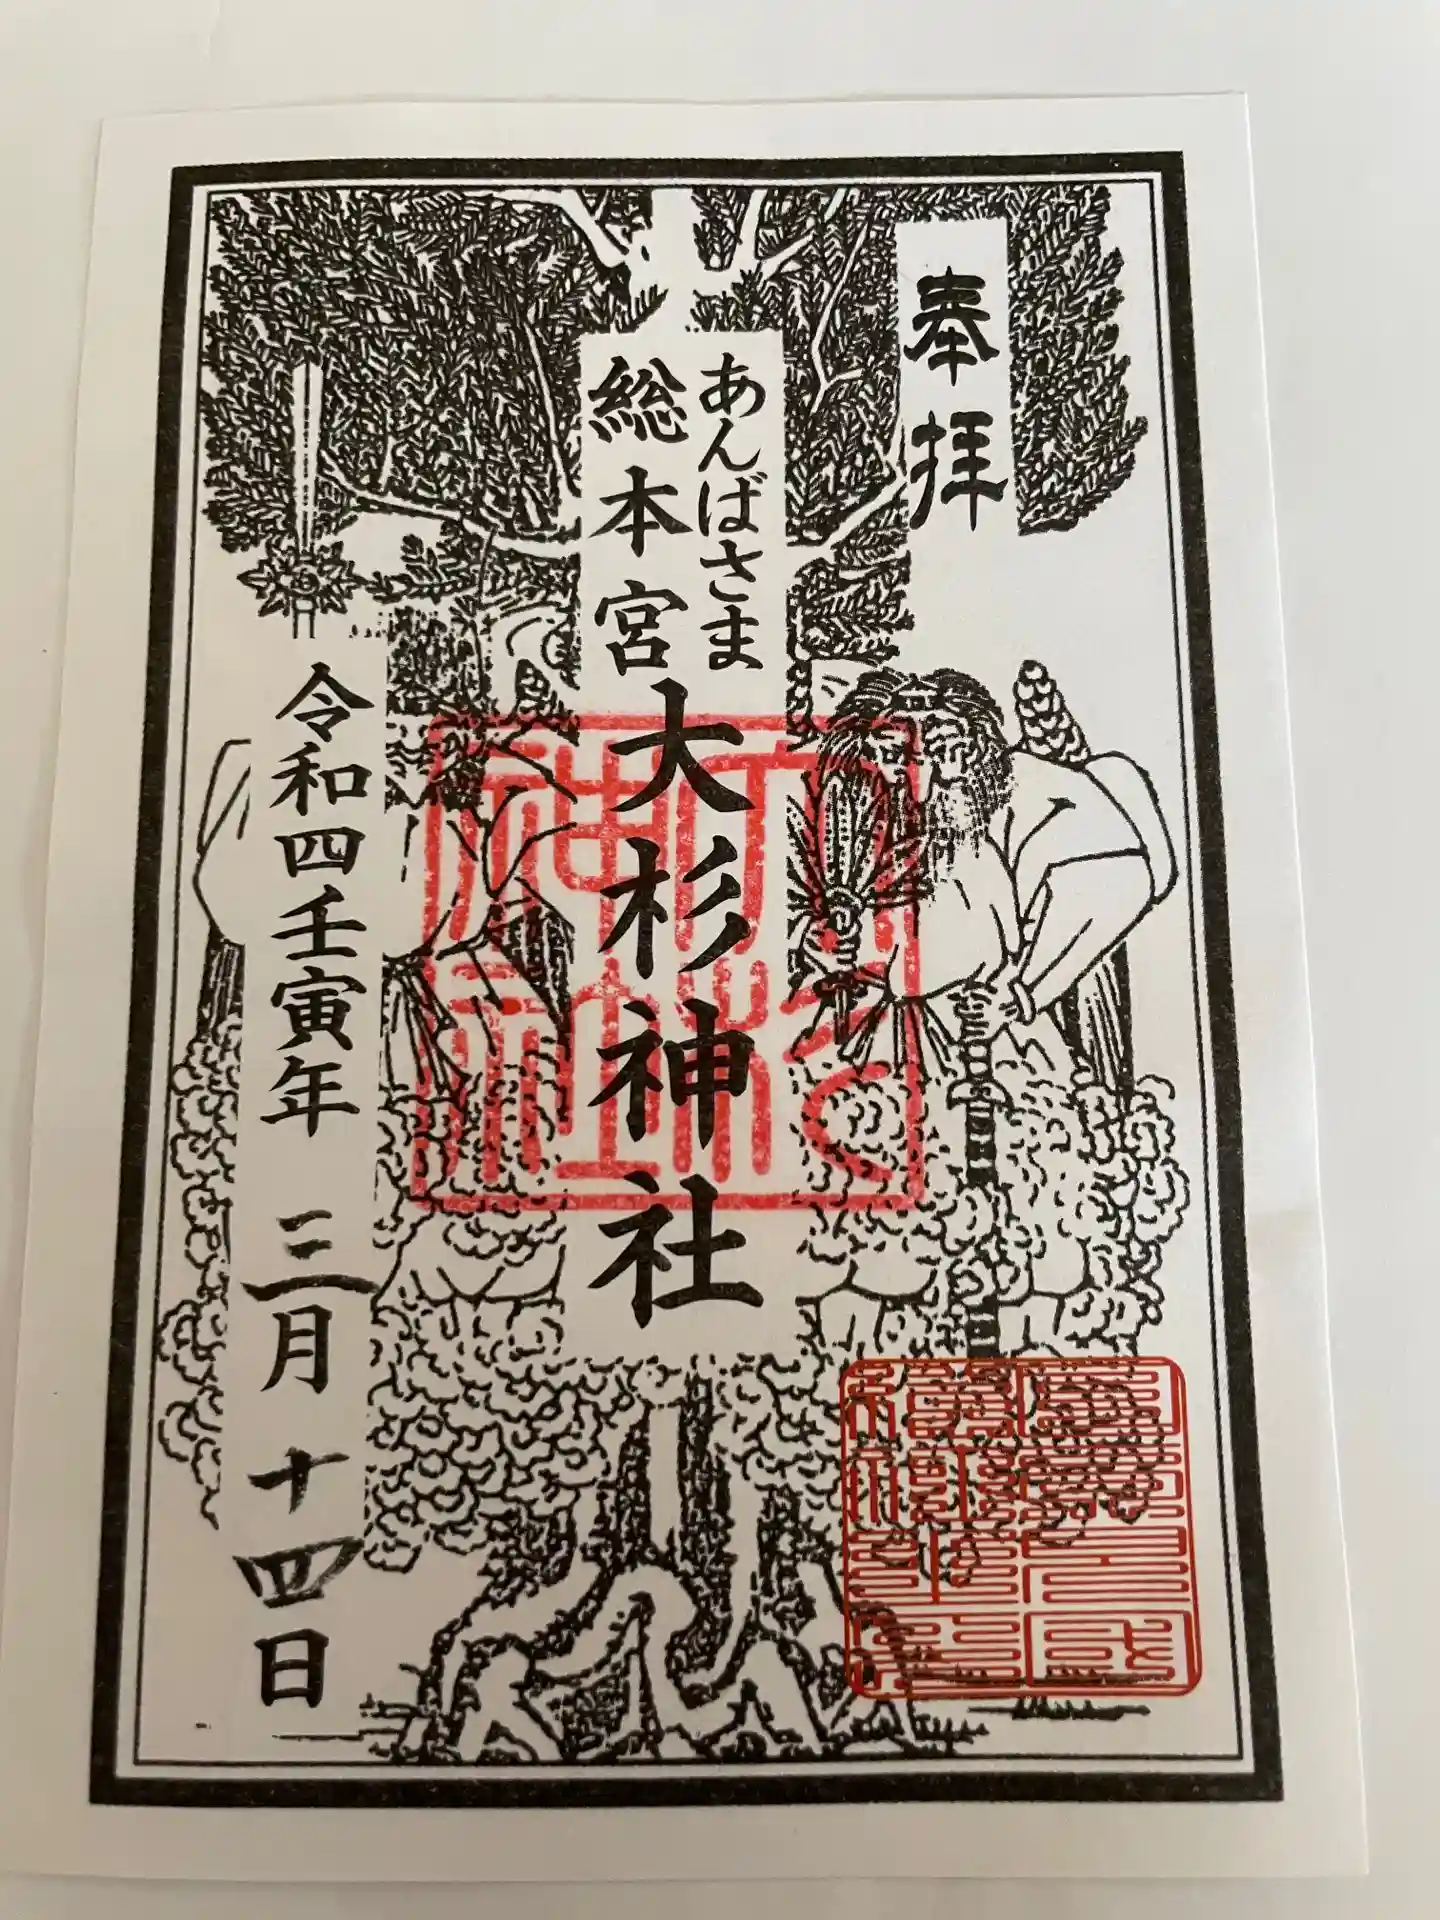 奉拝
あんばさま
総本宮
大杉神社
令和四壬寅年 三月 十四日
大杉神社